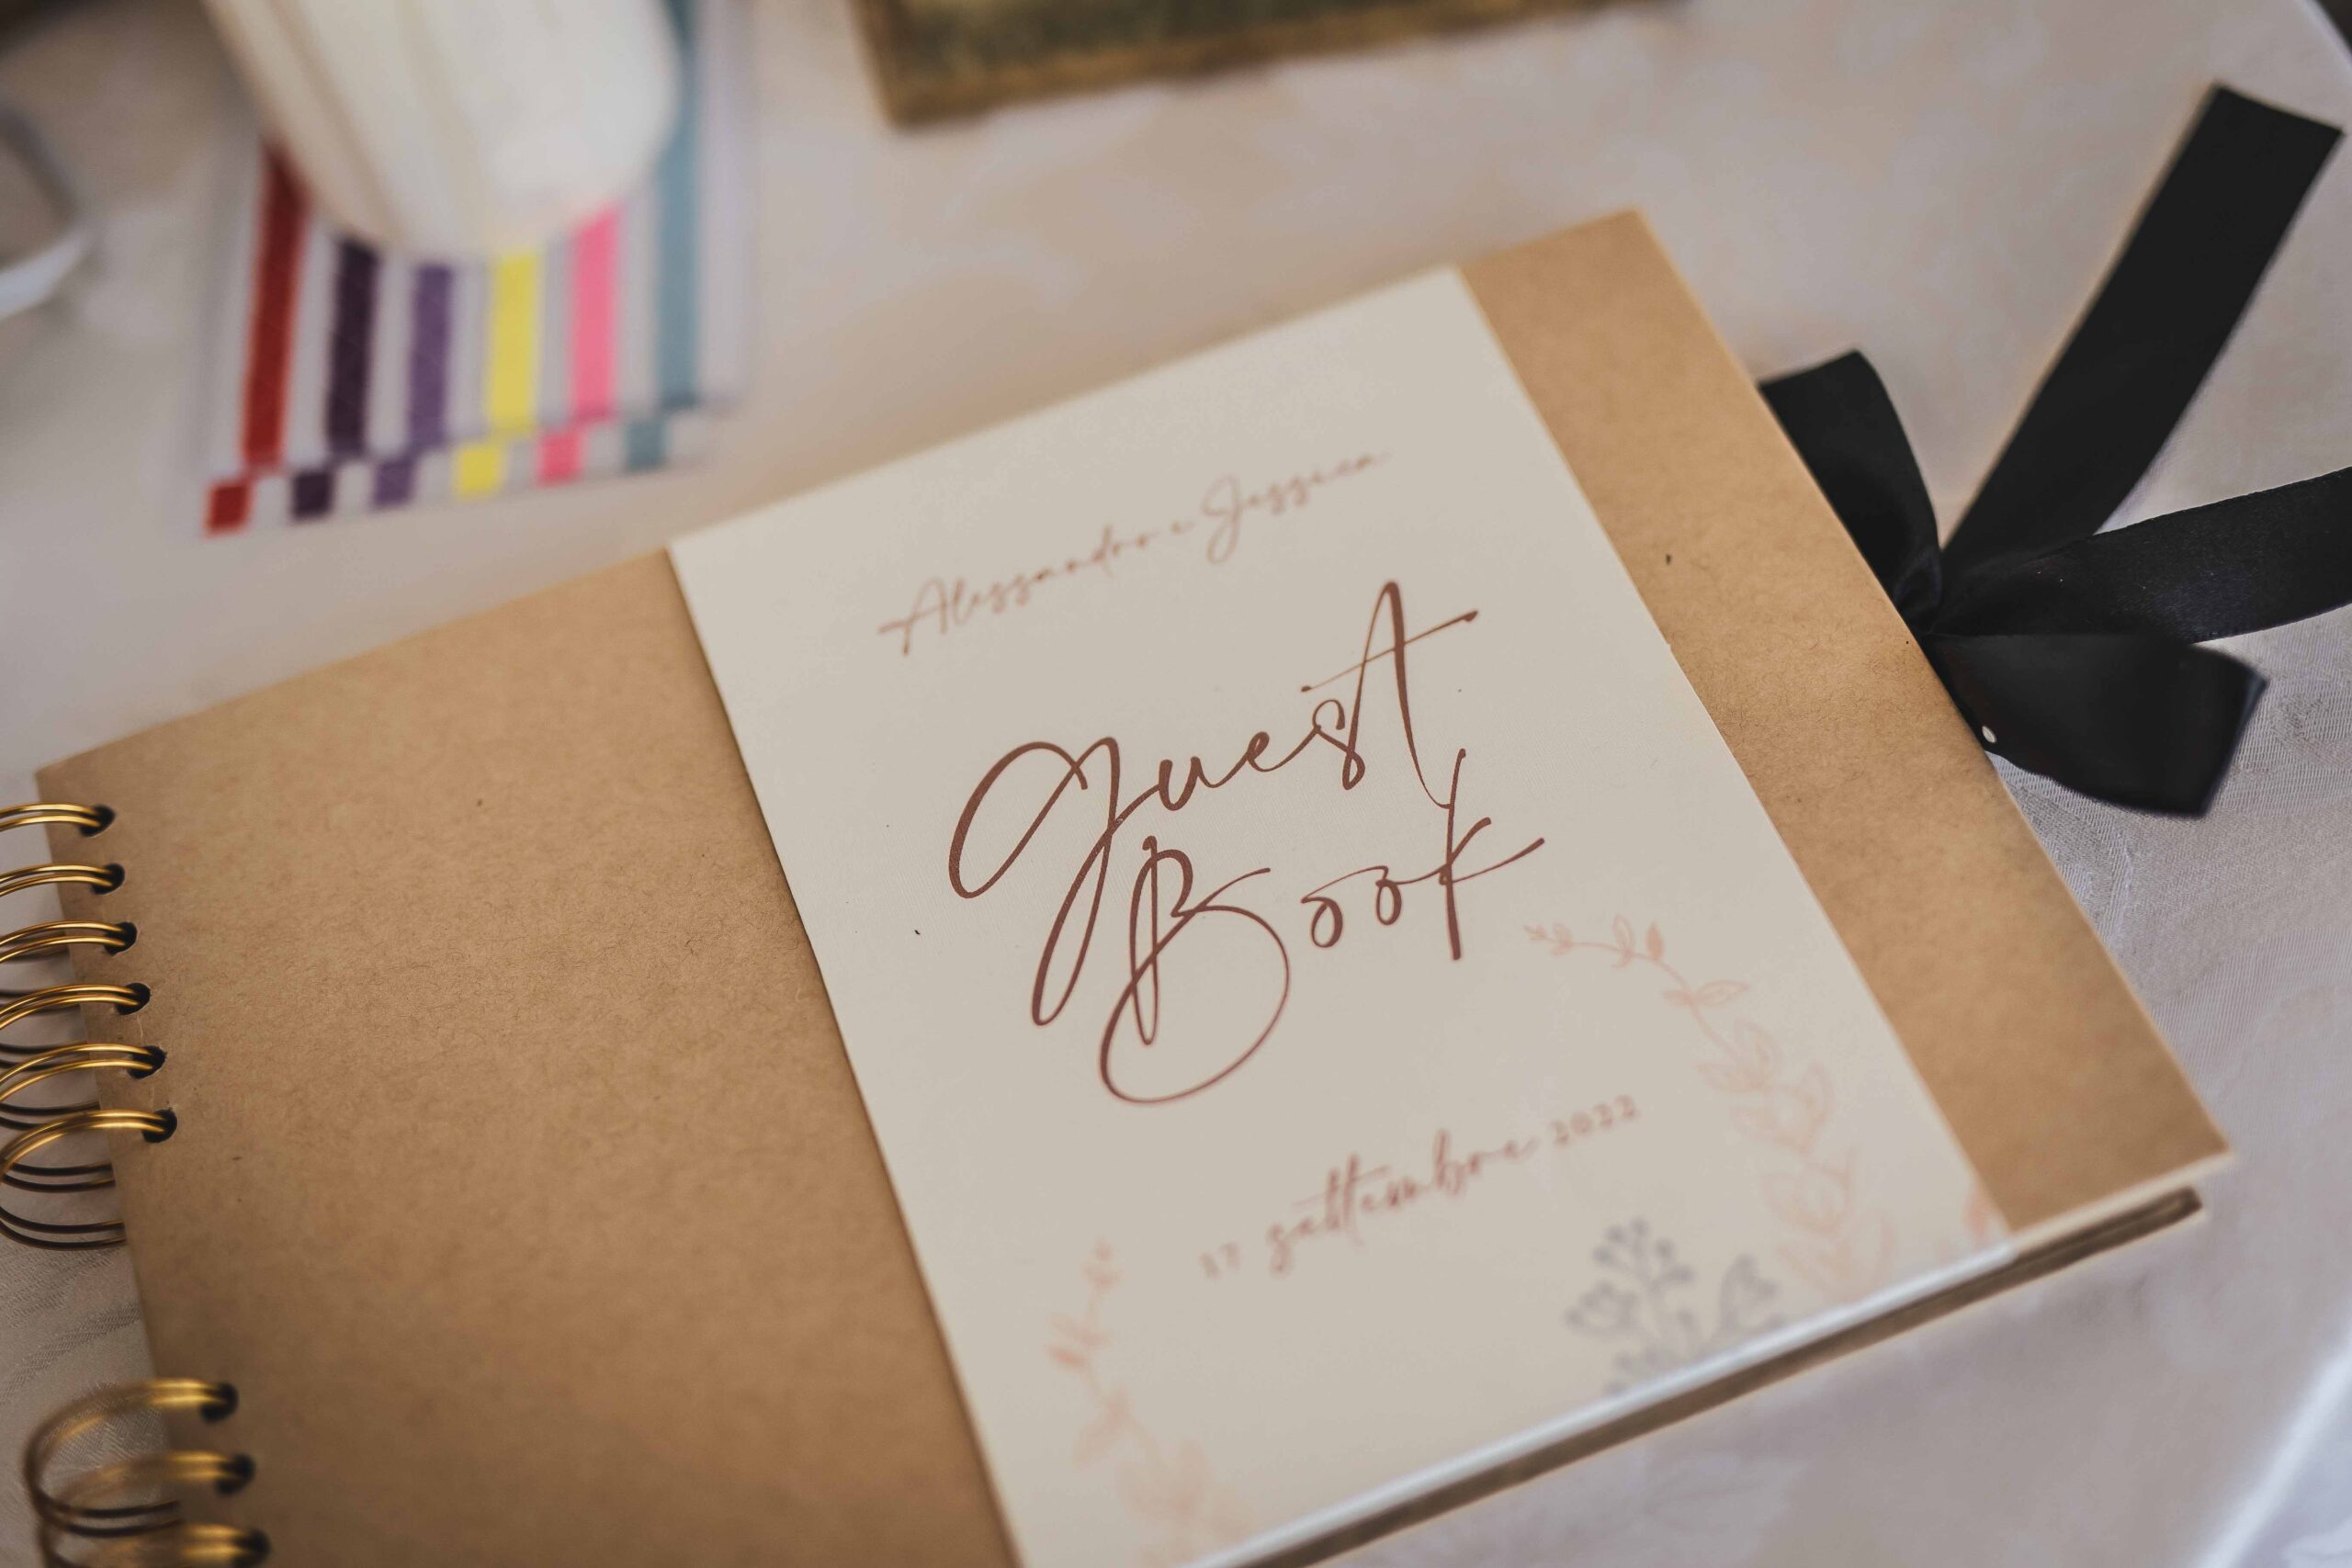 Alessandro e Jessica
Guest
Book
17 settembre 2022